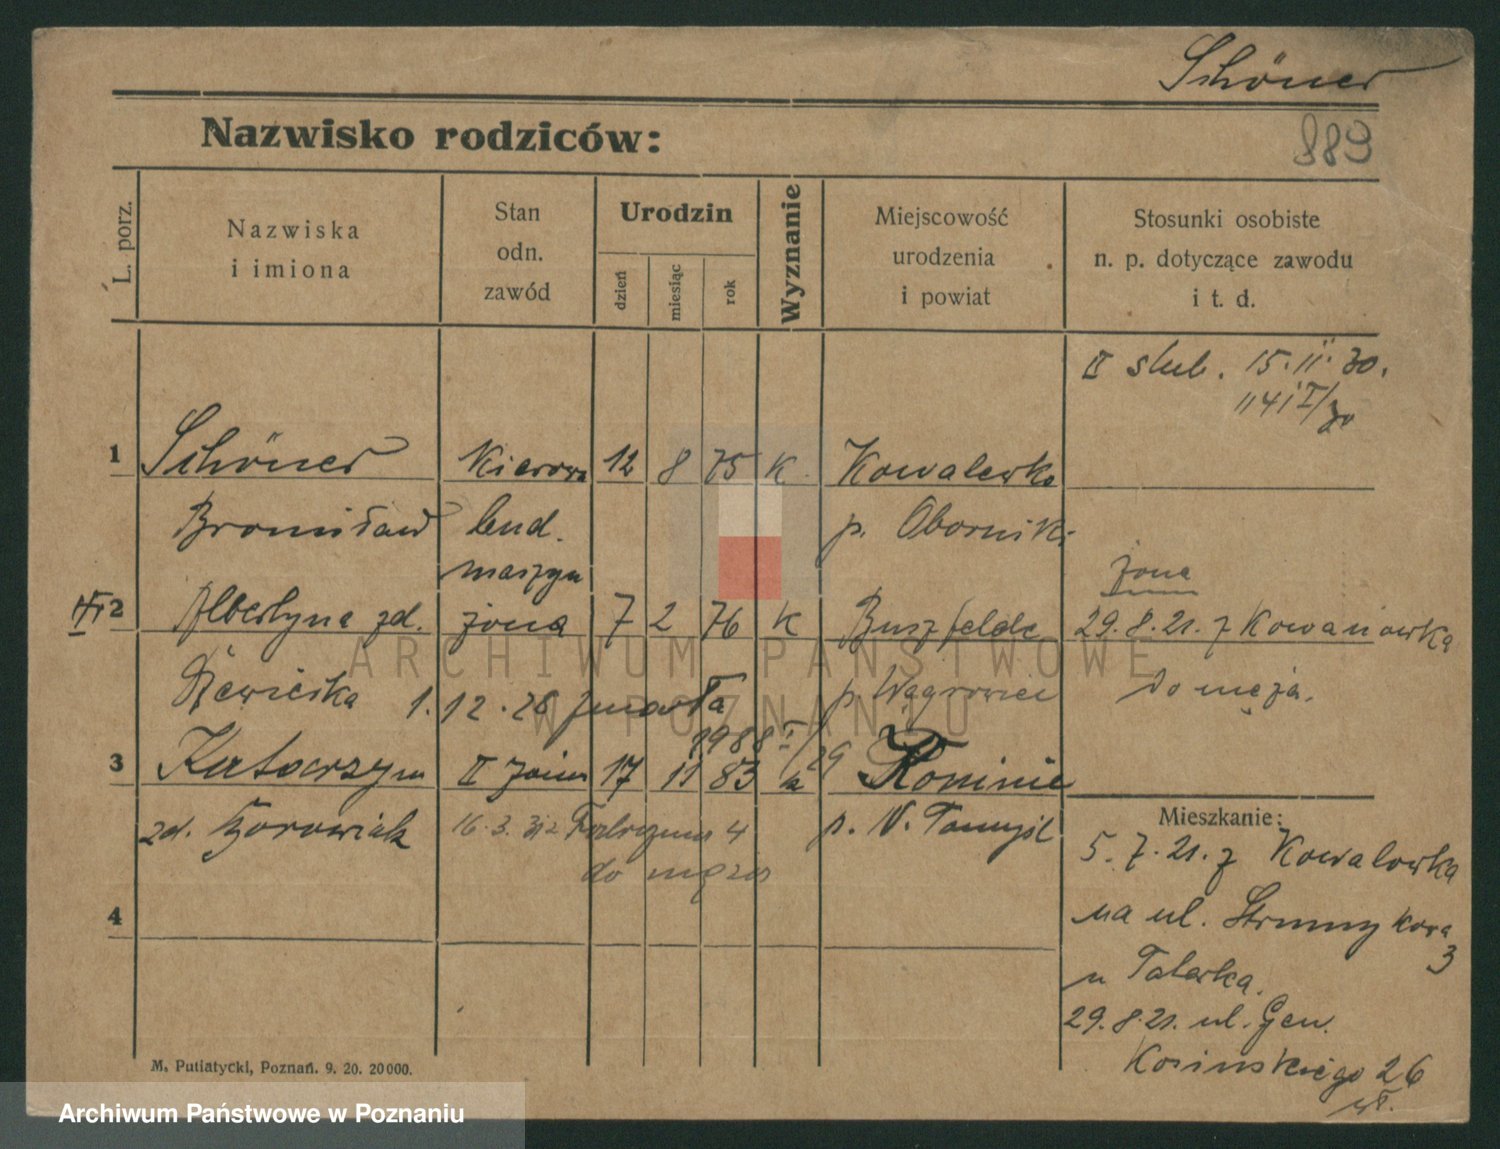 Schöner
889
Nazwisko rodziców:
L. porz.
Nazwiska
i imiona
Stan
odn.
zawód
Urodzin
dzień
miesiąc
rok
Wyznanie
Miejscowość
urodzenia
i powiat
Stosunki osobiste
n. p. dotyczące zawodu
i t. d.
II slub. 15.11.30.
1141 I/30
1 Schöner Kierown 12 8 75 K. Kowalewko
Bronisław bud. p. Oborniki
maszyn
żona
2 Albertyna zd. żona 7 2 76 K Buszfelde 29.8.21. z Kowanówka
1.12.28 zmarła p. Wągrowiec do męża.
8988 I/29
3 Katarzyna II żona 17 11 83 k Kominie
zd. Borowiak 16.3.32 4 p. N. Tomyśl
do męża
4
Mieszkanie:
5.7.21. z Kowalowka
na ul. Strumykowa
3
u Talarka.
29.8.21. ul. Gen.
Kosinskiego 26
wł.
M. Putiatycki, Poznań. 9. 20. 20000.
ARCHIWUM PAŃSTWOWE
W POZNANIU
Archiwum Państwowe w Poznaniu